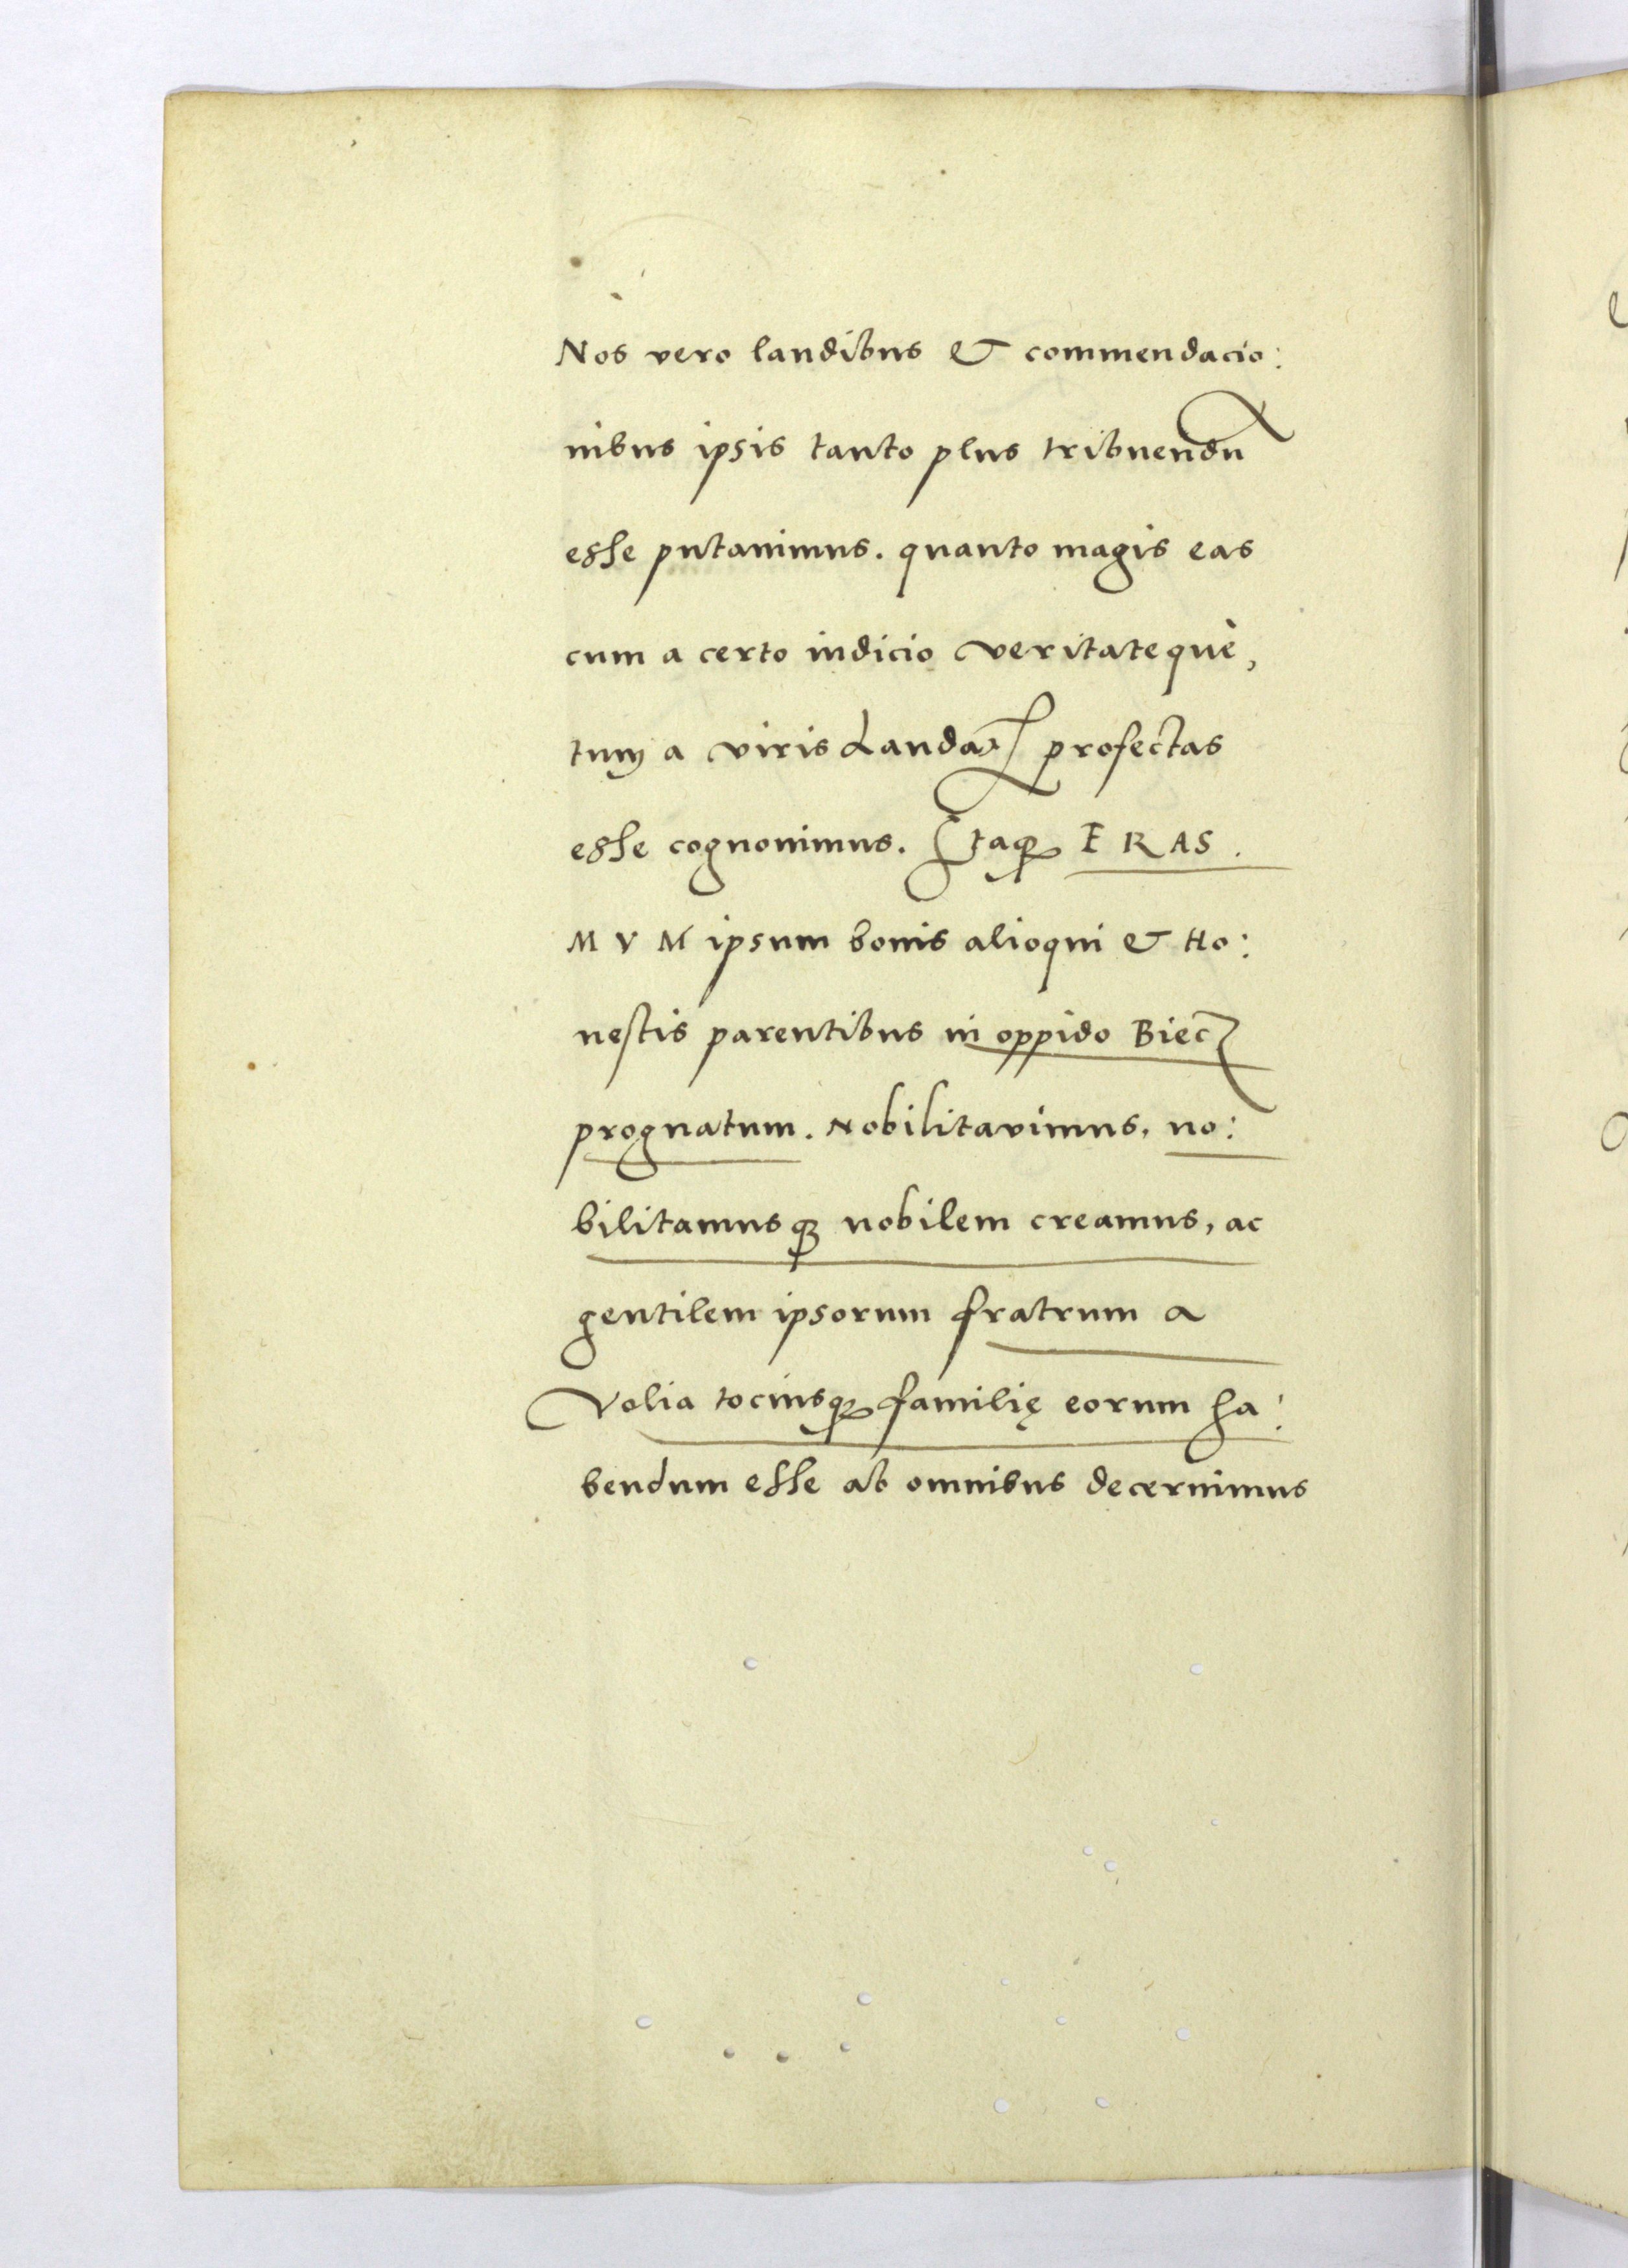 Nos vero laudibus & commendacio:
nibus ipsis tanto plus tribuendũ
esse putauimus. quanto magis eas
cum a certo iudicio veritatequè,
tum a viris Laudaꝶ profectas
esse cognouimus. Itaqꝫ ERAS.
MVM ipsum bonis alioqui & Ho:
nestis parentibus in oppido Biecz
prognatum. Nobilitavimus, no:
bilitamusqꝫ nobilem creamus, ac
gentilem ipsorum fratrum a
Volia tociusqꝫ familię eorum ha:
bendum esse ab omnibus decernimus